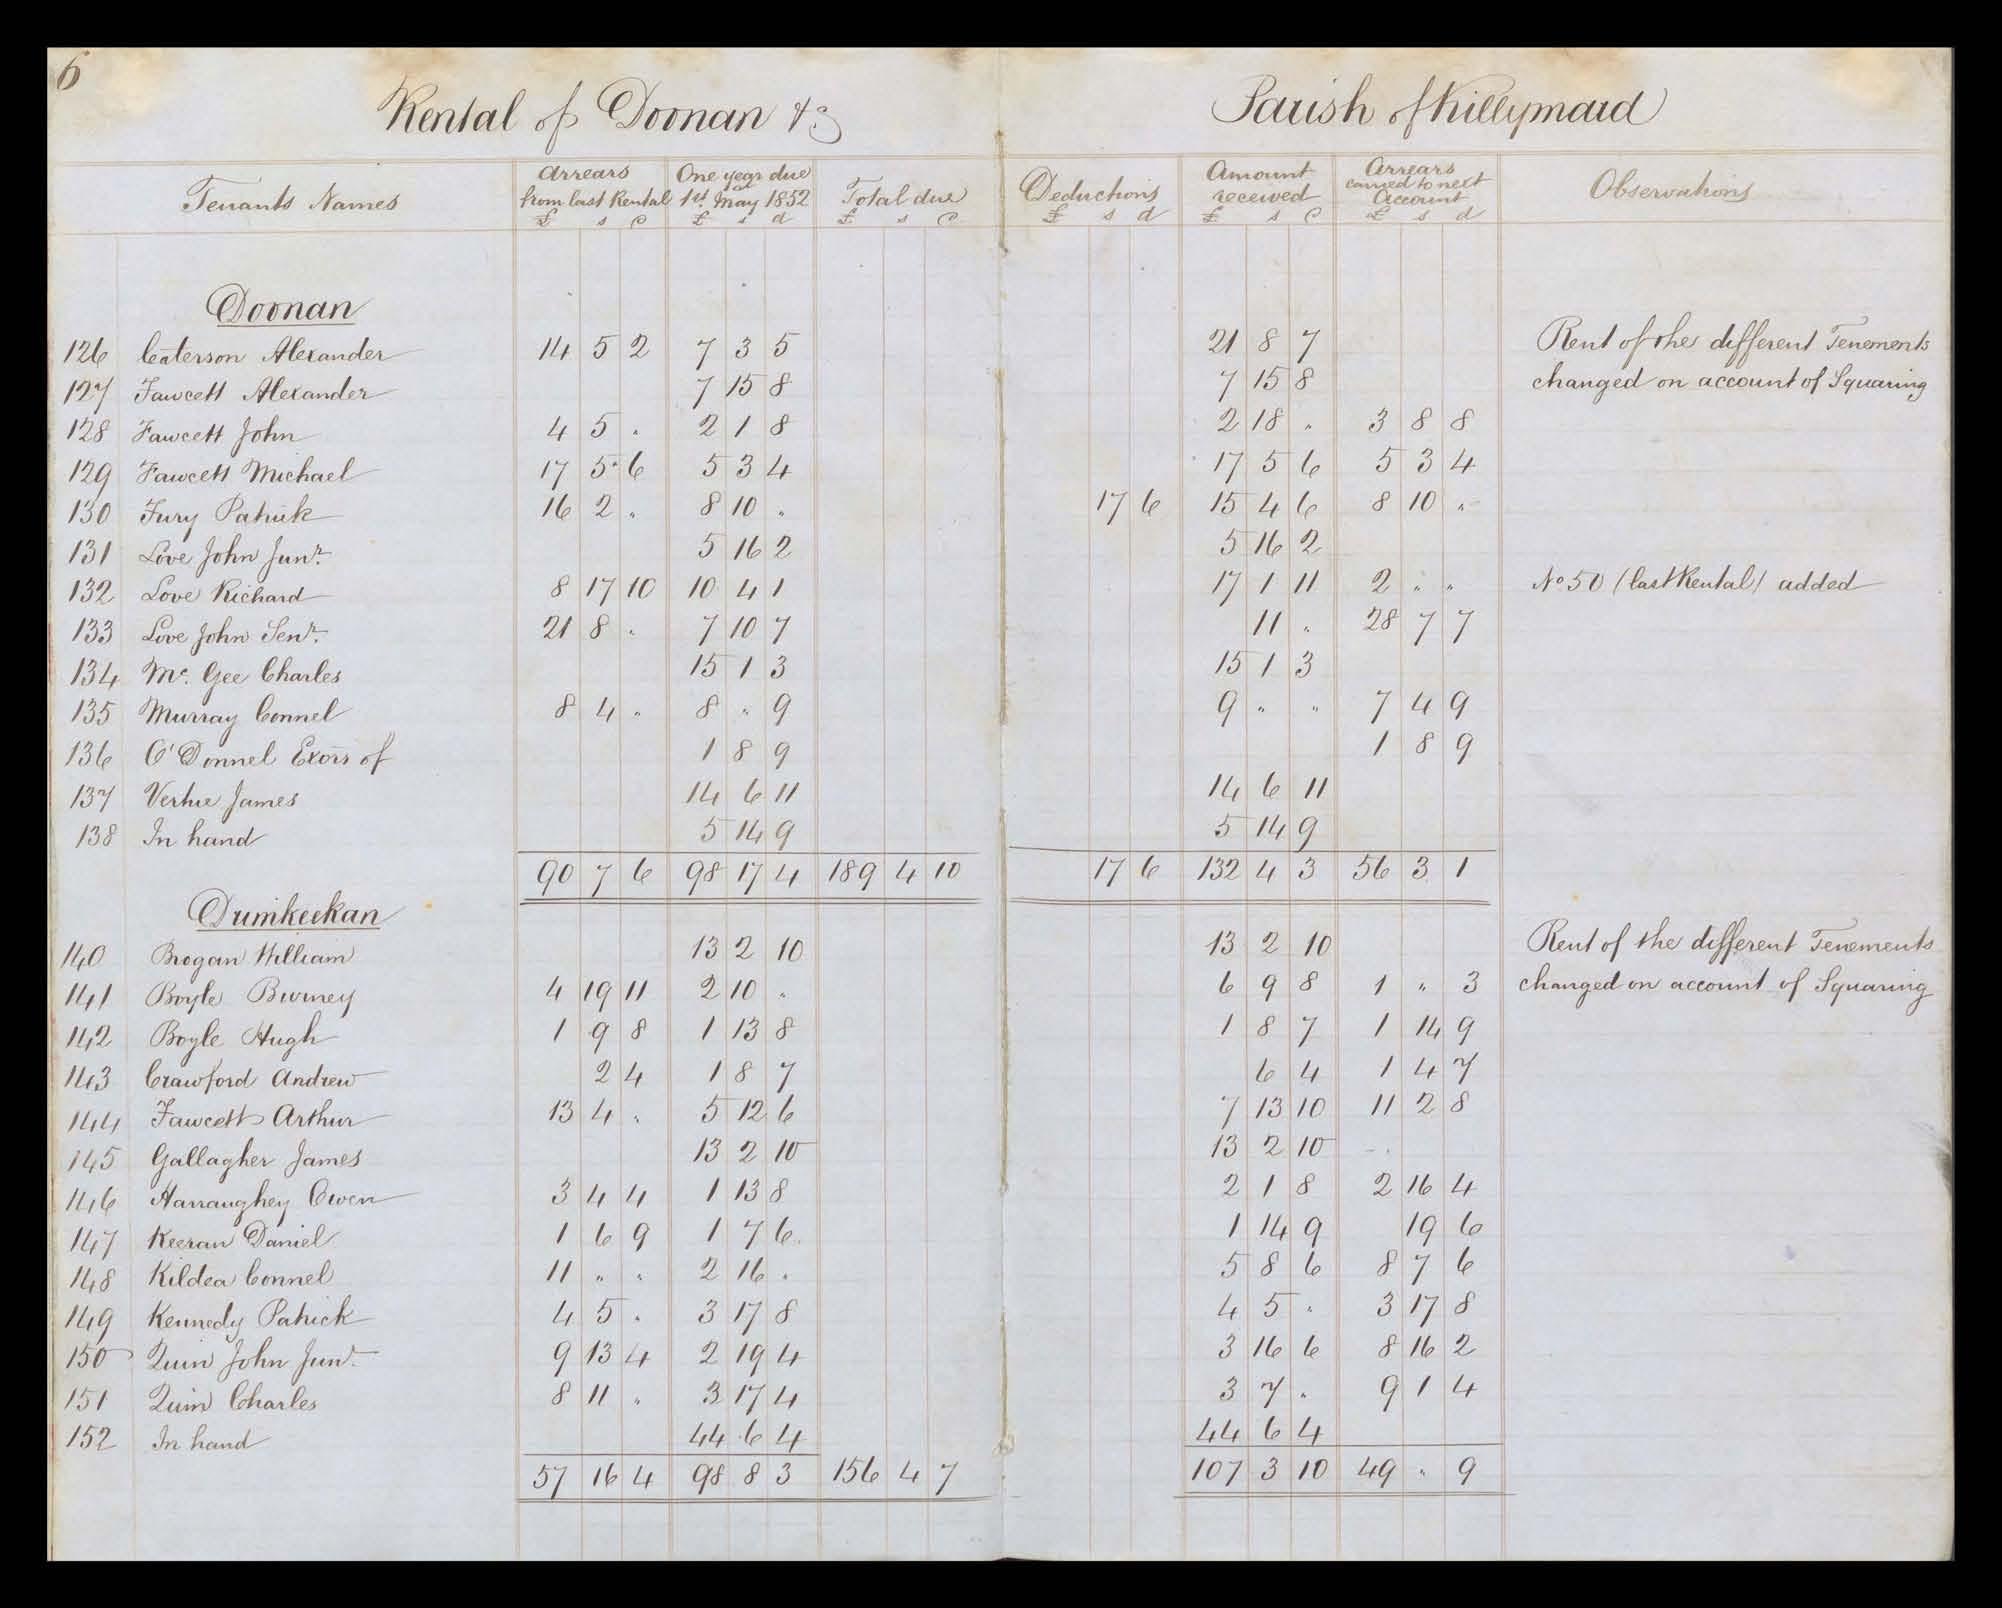 6
Rental of Doonan &c
Parish of Killymard
Tenants Names | Arrears from last Rental £ s d | One year due 1st May 1852 £ s d | Total due £ s d | Deductions £ s d | Amount received £ s d | Arrears carried to next Account £ s d | Observations
Doonan
126 Caterson Alexander 14 5 2 7 3 5 21 8 7 Rent of the different Tenements
127 Fawcett Alexander 7 15 8 7 15 8 changed on account of Squaring
128 Fawcett John 4 5 " 2 1 8 2 18 " 3 8 8
129 Fawcett Michael 17 5 6 5 3 4 17 5 6 5 3 4
130 Fury Patrick 16 2 " 8 10 " 17 6 15 4 6 8 10 "
131 Love John Junr. 5 16 2 5 16 2
132 Love Richard 8 17 10 10 4 1 17 1 11 2 " " No 50 (last Rental) added
133 Love John Senr. 21 8 " 7 10 7 11 " 28 7 7
134 Mc. Gee Charles 15 1 3 15 1 3
135 Murray Connel 8 4 " 8 " 9 9 " " 7 4 9
136 O'Donnel Exors of 1 8 9 1 8 9
137 Vertue James 14 6 11 14 6 11
138 In hand 5 14 9 5 14 9
90 7 6 98 17 4 189 4 10 17 6 132 4 3 56 3 1
Drumkeekan
140 Brogan William 13 2 10 13 2 10 Rent of the different Tenements
141 Boyle Burney 4 19 11 2 10 " 6 9 8 1 " 3 changed on account of Squaring
142 Boyle Hugh 1 9 8 1 13 8 1 8 7 1 14 9
143 Crawford Andrew 2 4 1 8 7 6 4 1 4 7
144 Fawcett Arthur 13 4 " 5 12 6 7 13 10 11 2 8
145 Gallagher James 13 2 10 13 2 10
146 Harraughey Owen 3 4 4 1 13 8 2 1 8 2 16 4
147 Keeran Daniel 1 6 9 1 7 6 1 14 9 19 6
148 Kildea Connel 11 " " 2 16 " 5 8 6 8 7 6
149 Kennedy Patrick 4 5 " 3 17 8 4 5 " 3 17 8
150 Quin John Junr. 9 13 4 2 19 4 3 16 6 8 16 2
151 Quin Charles 8 11 " 3 17 4 3 7 " 9 1 4
152 In hand 44 6 4 44 6 4
57 16 4 98 8 3 156 4 7 107 3 10 49 " 9